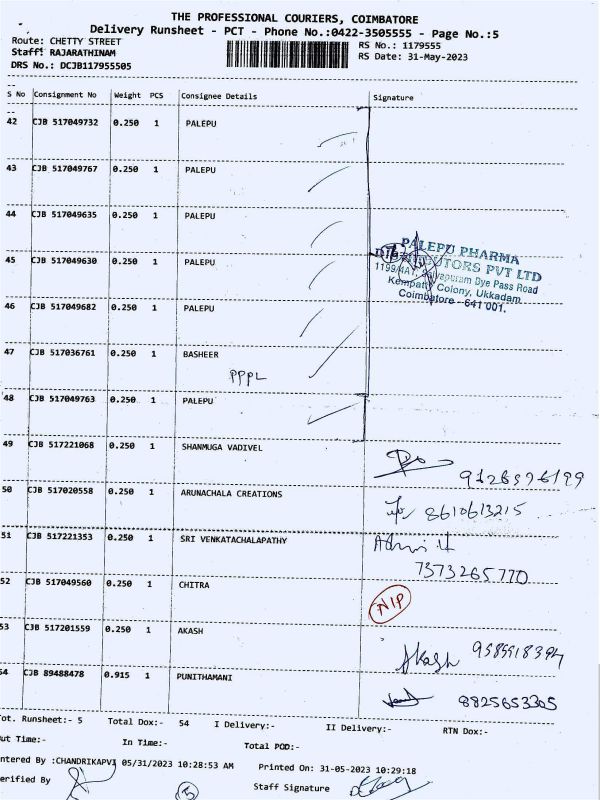 THE PROFESSIONAL COURIERS, COIMBATORE
Delivery Runsheet - PCT - Phone No.:0422-3505555 - Page No.:5
Route: CHETTY STREET
RS No.: 1179555
Staff: RAJARATHINAM
RS Date: 31-May-2023
DRS No.: DCJB117955505
S No Consignment No Weight PCS Consignee Details Signature
42 CJB 517049732 0.250 1 PALEPU
43 CJB 517049767 0.250 1 PALEPU
44 CJB 517049635 0.250 1 PALEPU
45 CJB 517049630 0.250 1 PALEPU
PALEPU PHARMA
DISTRIBUTORS PVT LTD
Bye Pass Road
Colony, Ukkadam
Coimbatore - 641 001.
46 CJB 517049682 0.250 1 PALEPU
47 CJB 517036761 0.250 1 BASHEER
PPPL
48 CJB 517049763 0.250 1 PALEPU
49 CJB 517221068 0.250 1 SHANMUGA VADIVEL
50 CJB 517020558 0.250 1 ARUNACHALA CREATIONS
8610613215
51 CJB 517221353 0.250 1 SRI VENKATACHALAPATHY
7373265770
52 CJB 517049560 0.250 1 CHITRA
NIP
53 CJB 517201559 0.250 1 AKASH
Akash
54 CJB 89488478 0.915 1 PUNITHAMANI
8825653305
Tot. Runsheet:- 5 Total Dox:- 54 I Delivery:- II Delivery:- RTN Dox:-
Out Time:- In Time:- Total POD:-
Entered By :CHANDRIKAPVI 05/31/2023 10:28:53 AM Printed On: 31-05-2023 10:29:18
Verified By Staff Signature
5